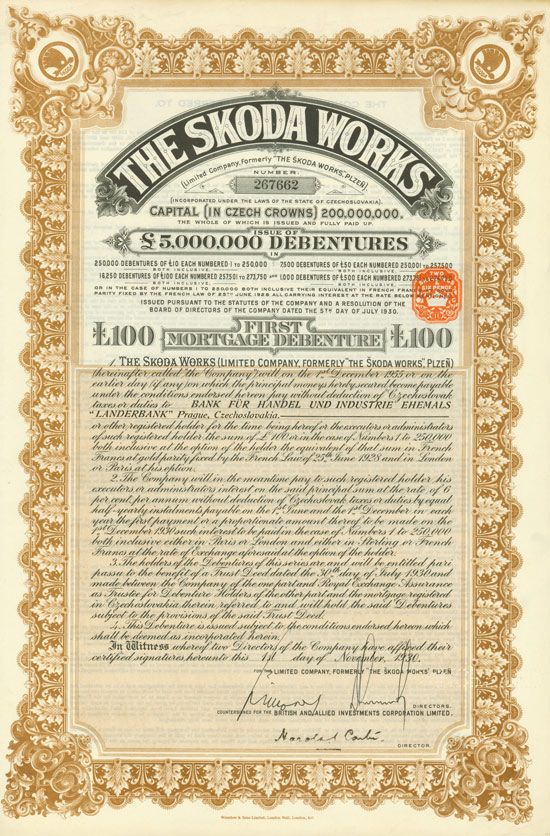 THE SKODA WORKS
(Limited Company, Formerly "THE ŠKODA WORKS", PLZEŇ)
NUMBER:
267662
(INCORPORATED UNDER THE LAWS OF THE STATE OF CZECHOSLOVAKIA).
CAPITAL (IN CZECH CROWNS) 200,000,000.
THE WHOLE OF WHICH IS ISSUED AND FULLY PAID UP.
ISSUE OF
£5,000,000 DEBENTURES
IN
250,000 DEBENTURES OF £10 EACH NUMBERED 1 TO 250,000 : 7500 DEBENTURES OF £50 EACH NUMBERED 250,001 TO 257,500
BOTH INCLUSIVE, BOTH INCLUSIVE,
16,250 DEBENTURES OF £100 EACH NUMBERED 257,501 TO 273,750 AND 1,000 DEBENTURES OF £500 EACH NUMBERED 273,75
BOTH INCLUSIVE, BOTH INCLUSIVE,
OR IN THE CASE OF NUMBERS 1 TO 250,000 BOTH INCLUSIVE THEIR EQUIVALENT IN FRENCH FRAN
PARITY FIXED BY THE FRENCH LAW OF 25TH JUNE 1928 ALL CARRYING INTEREST AT THE RATE BELOW MENTIONED.
ISSUED PURSUANT TO THE STATUTES OF THE COMPANY AND A RESOLUTION OF THE
BOARD OF DIRECTORS OF THE COMPANY DATED THE 5TH DAY OF JULY 1930.
TWO
SIX PENCE
£100 FIRST MORTGAGE DEBENTURE £100
1. THE SKODA WORKS (LIMITED COMPANY, FORMERLY "THE ŠKODA WORKS" PLZEŇ)
(hereinafter called "the Company") will on the 1st December 1955 or on the
earlier day (if any) on which the principal moneys hereby secured become payable
under the conditions endorsed hereon pay without deduction of Czechoslovak
taxes or duties to BANK FÜR HANDEL UND INDUSTRIE EHEMALS
"LANDERBANK" Prague, Czechoslovakia.
or other registered holder for the time being hereof or the executors or administrators
of such registered holder the sum of £100 or in the case of Numbers 1 to 250,000
both inclusive at the option of the holder the equivalent of that sum in French
Francs at gold parity fixed by the French Law of 25th June 1928 and in London
or Paris at his option.
2. The Company will in the meantime pay to such registered holder his
executors or administrators interest on the said principal sum at the rate of 6
per cent. per annum without deduction of Czechoslovak taxes or duties by equal
half-yearly instalments payable on the 1st June and the 1st December in each
year the first payment or a proportionate amount thereof to be made on the
1st December 1930 such interest to be paid in the case of Numbers 1 to 250,000
both inclusive either in Paris or London and either in Sterling or French
Francs at the rate of Exchange aforesaid at the option of the holder.
3. The holders of the Debentures of this series are and will be entitled pari
passu to the benefit of a Trust Deed dated the 30th day of July 1930 and
made between the Company of the one part and Royal Exchange Assurance
as Trustee for Debenture Holders of the other part and the mortgage registered
in Czechoslovakia therein referred to and will hold the said Debentures
subject to the provisions of the said Trust Deed.
4. This Debenture is issued subject to the conditions endorsed hereon which
shall be deemed as incorporated herein.
In Witness whereof two Directors of the Company have affixed their
certified signatures hereunto this 1st day of November, 1930.
FOR THE LIMITED COMPANY, FORMERLY "THE ŠKODA WORKS" PLZEŇ
DIRECTORS.
COUNTERSIGNED FOR THE BRITISH AND ALLIED INVESTMENTS CORPORATION LIMITED.
DIRECTOR.
Waterlow & Sons Limited, London Wall, London, E.C.